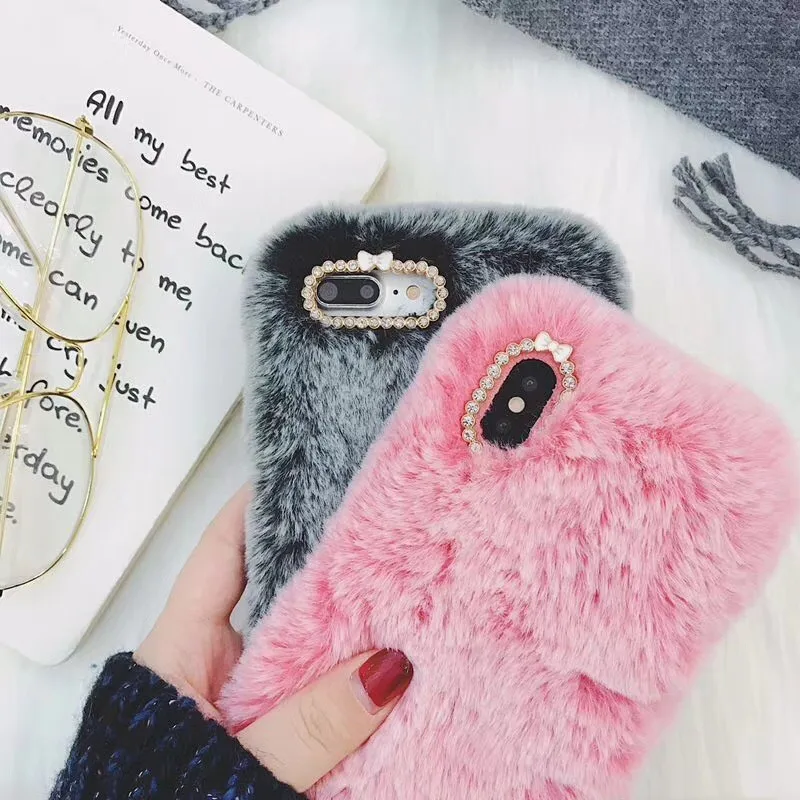 Yesterday Once More - THE CARPENTERS
All my best
memories come back
clearly to me,
ome can even
me cry just
before.
erday
e.